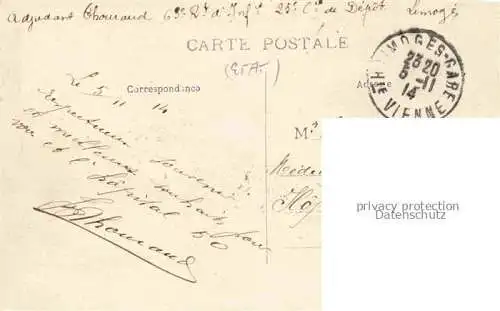 Adjudant Thouraud 63e Rt d'Infie 25e Cie de Dépôt Limoges
CARTE POSTALE
(Et-At-)
Correspondance
Adresse
LIMOGES-GARE
23 20
5-11
14
Hte VIENNE
Le 5/11 14
Respectueux souvenirs
et meilleurs souhaits pour
vous et l'hôpital 50
Thouraud
M
Méde
Hôp
privacy protection
samples.com